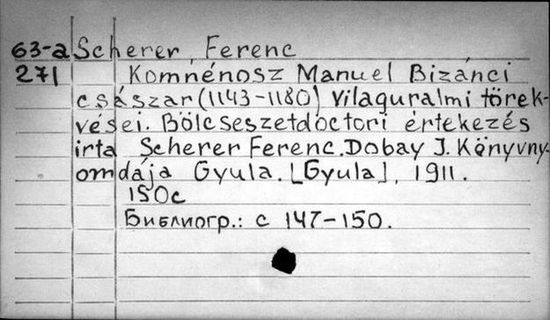 63-a Scherer, Ferenc
271 Komnénosz Manuel Bizánci
császar (1143-1180) vilaguralmi törek-
vései. Bölcseszetdoctori értekezés
irta Scherer Ferenc. Dobay J. Könyvny-
omdája Gyula. [Gyula], 1911.
150c
Библиогр.: с 147-150.